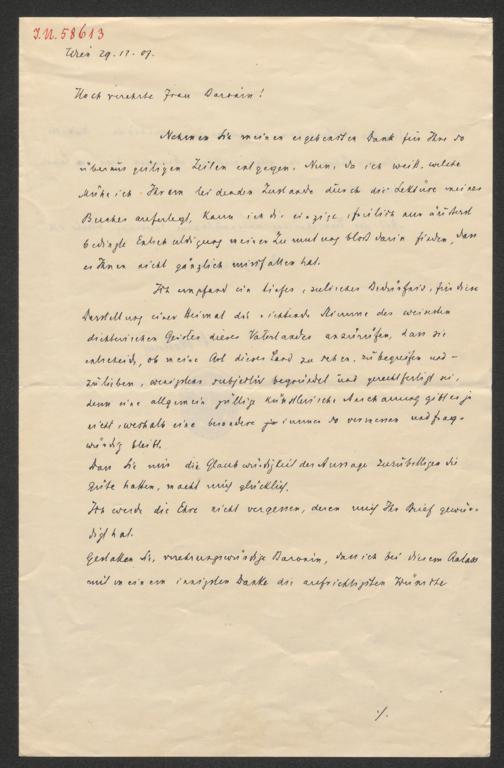 I.N. 58613
Wien 29.11.07.
Hoch verehrte Frau Baronin!
Nehmen Sie meinen ergebensten Dank für Ihre so
überaus gütigen Zeilen entgegen. Nun, da ich weiß, welche
Mühe ich Ihrem leidenden Zustande durch die Lektüre meines
Buches auferlegt, kann ich die einzige, freilich nur äußerst
bedingte Entschuldigung meiner Zumutung bloß darin finden, dass
es Ihnen nicht gänzlich missfallen hat.
Ich empfand ein tiefes, seelisches Bedürfnis, für diese
Darstellung einer Heimat die richtende Stimme des weisesten
dichterischen Geistes dieses Vaterlandes anzurufen, dass sie
entscheide, ob meine Art dieses Land zu sehen, zu begreifen und
zu lieben, wenigstens subjektiv begründet und gerechtfertigt sei,
denn eine allgemein gültige künstlerische Anschauung gibt es ja
nicht, weshalb eine besondere ja immer so vermessen und frag-
würdig bleibt.
Dass Sie mir die Glaubwürdigkeit der Aussage zuzubilligen die
Güte hatten, macht mich glücklich.
Ich werde die Ehre nicht vergessen, deren mich Ihr Brief gewür-
digt hat.
Gestatten Sie, verehrungswürdige Baronin, dass ich bei diesem Anlass
mit meinem innigsten Danke die aufrichtigsten Wünsche
./.